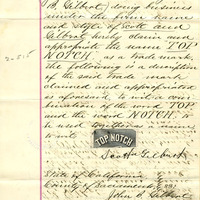 B. Gilbert) doing business
under the firm name
and style of Scott and
Gilbert hereby claim and
appropriate the name TOP
NOTCH as a trade mark.
The following is a description
of the said trade mark
claimed and appropriated
as aforesaid, to wit: a com-
bination of the word TOP
and the word NOTCH to
be used together as a name
to wit
TOP NOTCH
Scott & Gilbert
State of California
County of Sacramento
John B. Gilbert